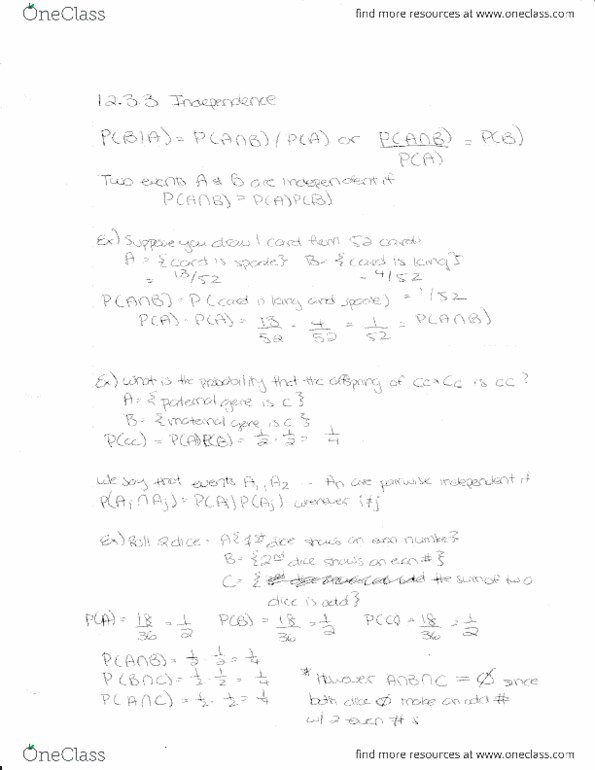 OneClass
find more resources at www.oneclass.com
12.3.3 Independence
P(B|A) = P(A∩B) / P(A) or P(A∩B)/P(A) = P(B)
Two events A & B are independent if
P(A∩B) = P(A)P(B)
Ex) Suppose you draw 1 card from 52 cards
A = {card is spade} B = {card is king}
= 13/52 = 4/52
P(A∩B) = P(card is king and spade) = 1/52
P(A) · P(A) = 13/52 · 4/52 = 1/52 = P(A∩B)
Ex) What is the probability that the offspring of Cc × Cc is cc?
A = {paternal gene is c}
B = {maternal gene is c}
P(cc) = P(A)P(B) = 1/2 · 1/2 = 1/4
We say that events A1, A2 .. An are pairwise independent if
P(Ai ∩ Aj) = P(Ai) P(Aj) whenever i≠j
Ex) Roll 2 dice = A{1st dice shows an even number}
B = {2nd dice shows an even #}
C = { the sum of two
dice is odd}
P(A) = 18/36 = 1/2 P(B) = 18/36 = 1/2 P(C) = 18/36 = 1/2
P(A∩B) = 1/2 · 1/2 = 1/4
P(B∩C) = 1/2 · 1/2 = 1/4
P(A∩C) = 1/2 · 1/2 = 1/4
* However A∩B∩C = Ø since
both dice Ø make an odd #
w/ 2 even #s
OneClass
find more resources at www.oneclass.com